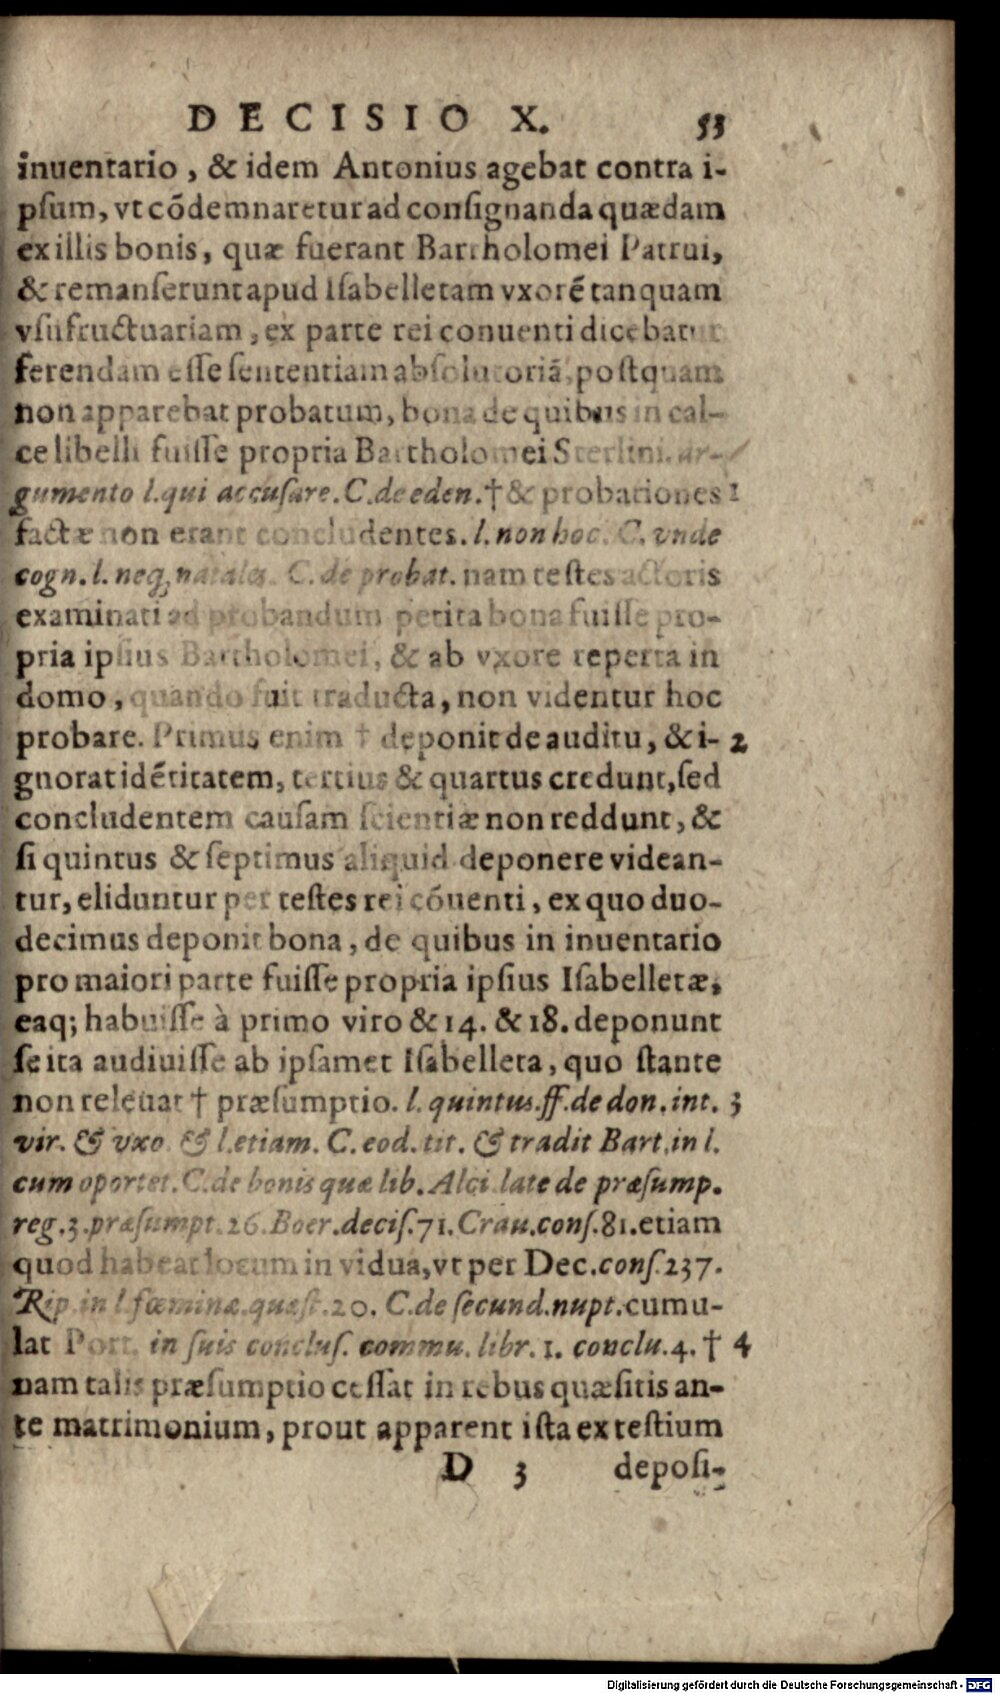 DECISIO X. 53
inuentario, & idem Antonius agebat contra i-
psum, vt cōdemnaretur ad consignanda quædam
ex illis bonis, quæ fuerant Bartholomei Patrui,
& remanserunt apud Isabelletam vxorē tanquam
vsufructuariam, ex parte rei conuenti dicebatur
ferendam esse sententiam absolutoriā, postquam
non apparebat probatum, bona de quibus in cal-
ce libelli fuisse propria Bartholomei Sterlini. ar-
gumento l. qui accusare. C. de eden. † & probationes 1
factæ non erant concludentes. l. non hoc. C. vnde
cogn. l. neq; natales. C. de probat. nam testes actoris
examinati ad probandum petita bona fuisse pro-
pria ipsius Bartholomei, & ab vxore reperta in
domo, quando fuit traducta, non videntur hoc
probare. Primus enim † deponit de auditu, & i- 2
gnorat idētitatem, tertius & quartus credunt, sed
concludentem causam scientiæ non reddunt, &
si quintus & septimus aliquid deponere videan-
tur, eliduntur per testes rei cōuenti, ex quo duo-
decimus deponit bona, de quibus in inuentario
pro maiori parte fuisse propria ipsius Isabelletæ,
eaq; habuisse à primo viro & 14. & 18. deponunt
se ita audiuisse ab ipsamet Isabelleta, quo stante
non releuat † præsumptio. l. quintus. ff. de don. int. 3
vir. & vxo. & l. etiam. C. eod. tit. & tradit Bart. in l.
cum oportet. C. de bonis quæ lib. Alci late de præsump.
reg. 3. præsumpt. 26. Boer. decis. 71. Crau. cons. 81. etiam
quod habeat locum in vidua, vt per Dec. cons. 237.
Rip. in l. fœminæ. quæst. 20. C. de secund. nupt. cumu-
lat Port. in suis conclus. commu. libr. 1. conclu. 4. † 4
nam talis præsumptio cessat in rebus quæsitis an-
te matrimonium, prout apparent ista ex testium
D 3 deposi-
Digitalisierung gefördert durch die Deutsche Forschungsgemeinschaft - DFG